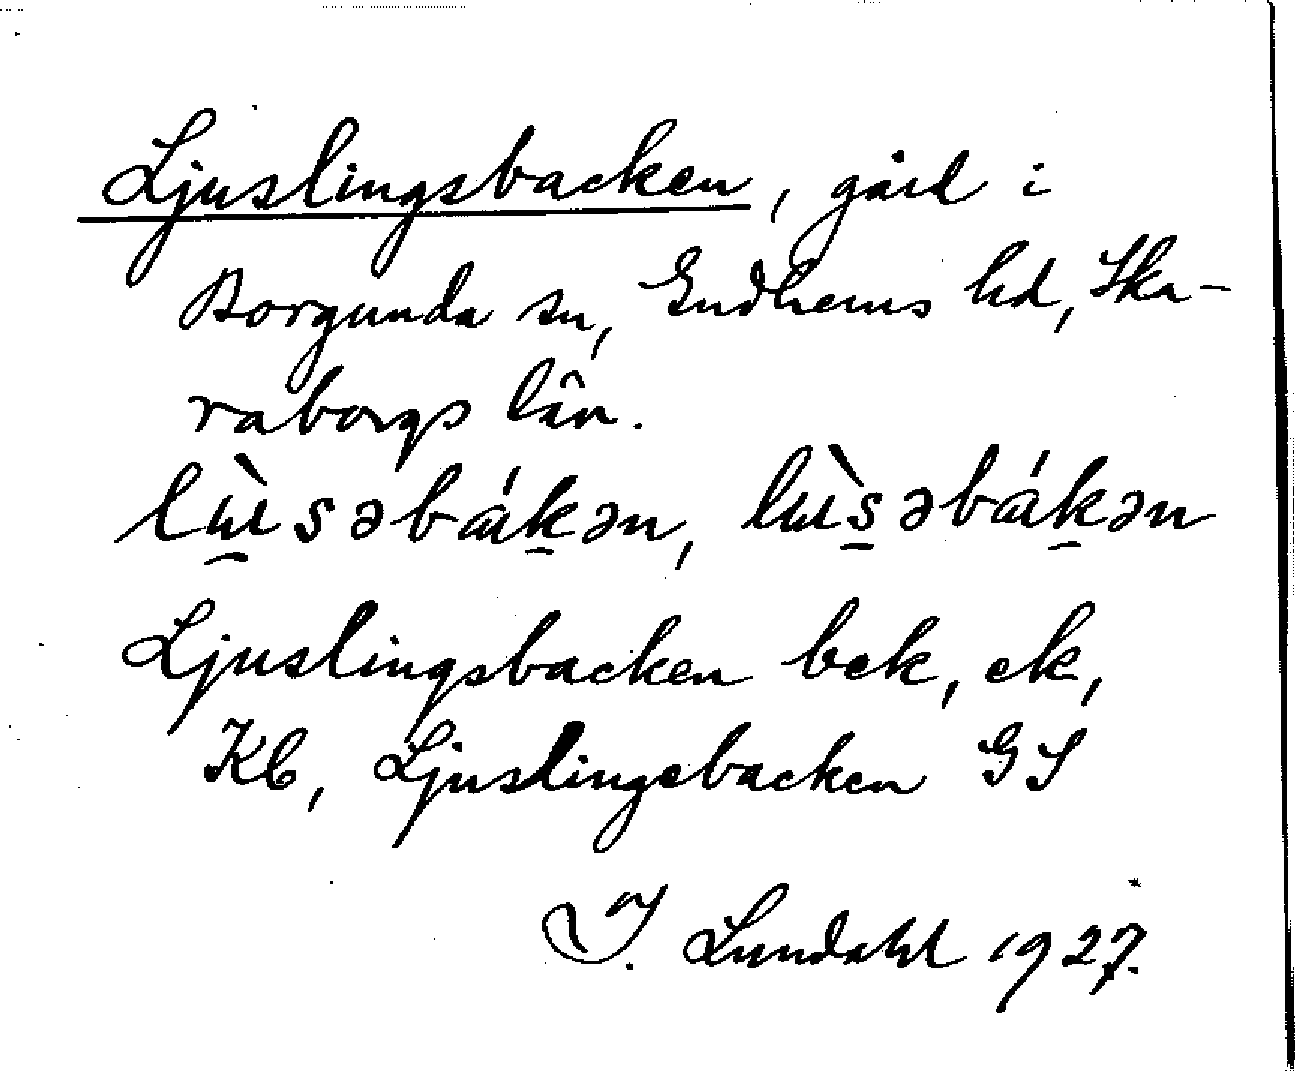 Ljuslingsbacken, gård i
Borgunda sn, Gudhems hd, Ska-
raborgs län.
lɯ̱̀səbáḵən, lɯ̀s̱əbáḵən
Ljuslingsbacken bek, ek,
Kb, Ljuslingebacken GS
I. Lundahl 1927.